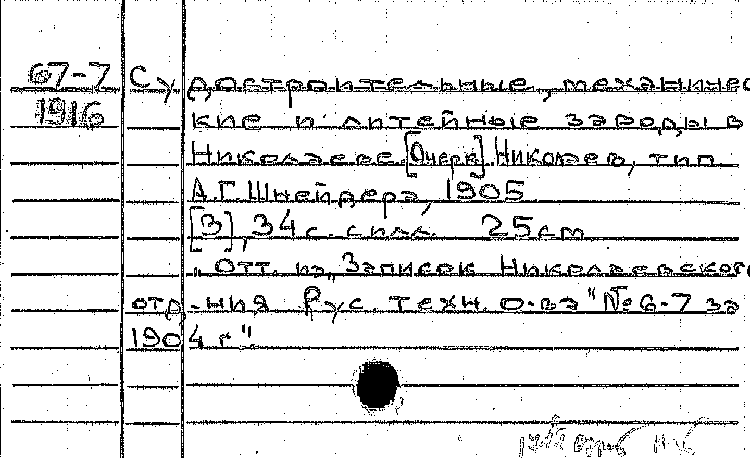 67-7 Судостроительные, механичес
1916 кие и литейные заводы в
Николаеве. [Очерк]. Николаев, тип.
А.Г. Шнейдера, 1905.
[3], 34 с. с илл. 25 см
"Отт. из "Записок Николаевского
отд-ния Рус. техн. о-ва" № 6-7 за
1904 г".